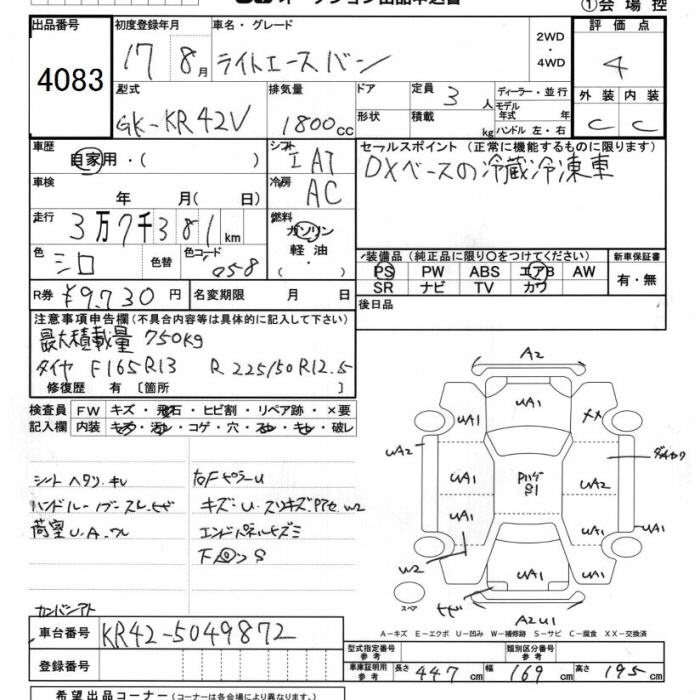 オークション出品申込書
①会場控
出品番号 初度登録年月 車名・グレード 評価点
4083 17 8月 ライトエースバン 2WD ・ 4WD 4
型式 排気量 ドア 定員 3 人 ディーラー・並行 外装 内装
GK-KR42V 1800cc 形状 積載 kg モデル年式 年 C C
ハンドル 左・右
車歴 自家用・( ) シフト IAT セールスポイント (正常に機能するものに限ります)
DXベースの冷蔵冷凍車
車検 年 月( 日) 冷房 AC
走行 3万7千381km 燃料 ガソリン 軽油 ・( )
色 シロ 色替 色コード 058
装備品(純正品に限り○をつけてください) 新車保証書
PS PW ABS エアB AW 有・無
SR ナビ TV カワ
R券 ¥9,730円 名変期限 月 日 後日品
注意事項申告欄(不具合内容等は具体的に記入して下さい)
最大積載量 750kg
タイヤ F165R13 R 225/50R12.5
修復歴 有 [箇所 ]
検査員 FW キズ・飛石・ヒビ割・リペア跡・×要
記入欄 内装 キズ・汚レ・コゲ・穴・スレ・キレ・破レ
シートヘタリ・キレ 右FピラーU
荷室U.A.ワレ
エンドパネルキズミ
カンバンアト
A2
UA1
UA1 XX
UA2
UA1 UA2
UA1 UA1
W2 UA1 UA1 UA1
スペア
A2U1
A-キズ E-エクボ U-凹み W-補修跡 S-サビ C-腐食 XX-交換済
車台番号 KR42-5049872
登録番号
型式指定番号 参考 類別区分番号 参考
車庫証明用 参考 長さ 447cm 幅 169cm 高さ 195cm
希望出品コーナー(コーナーは各会場により異なります)